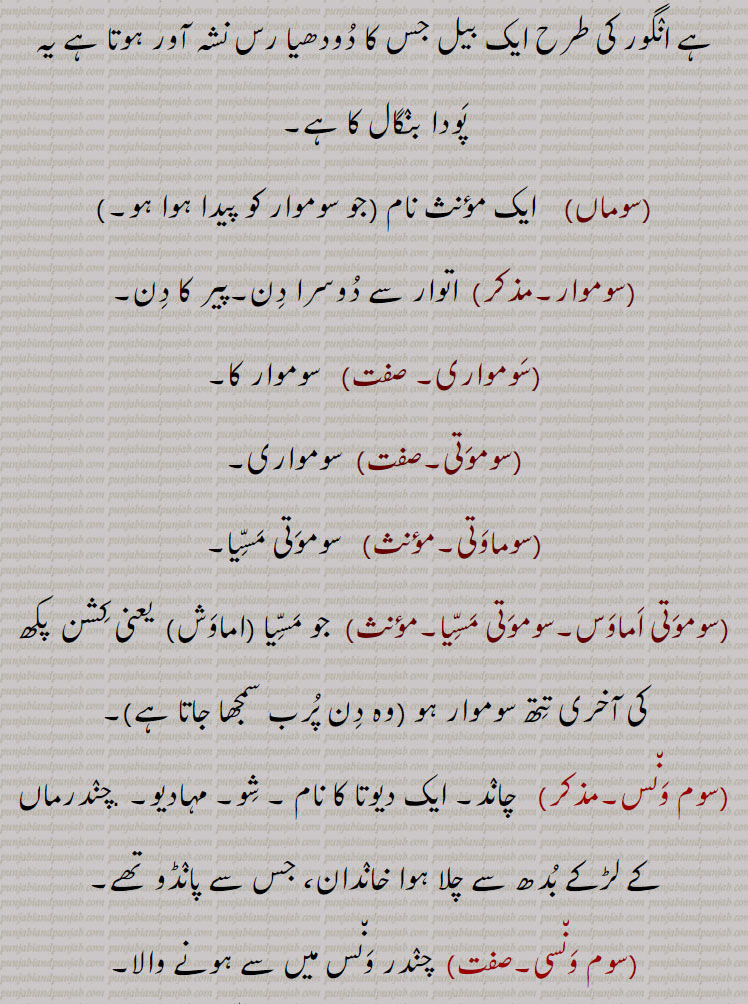 ہے انگور کی طرح ایک بیل جس کا دُودھیا رس نشہ آور ہوتا ہے یہ
پَودا بنگال کا ہے۔
(سوماں) ایک مؤنث نام (جو سوموار کو پیدا ہوا ہو۔)
(سوموار۔مذکر) اتوار سے دُوسرا دِن۔پیر کا دِن۔
(سَومواری۔ صفت) سوموار کا۔
(سوموَتی۔صفت) سومواری۔
(سوماوَتی۔مؤنث) سوموَتی مَسِّیا۔
(سوموَتی اَماوَس۔سوموَتی مَسِّیا۔مؤنث) جو مَسِّیا (اماوَش) یعنی کِشن پکھ
کی آخری تِتھ سوموار ہو (وہ دِن پُرب سمجھا جاتا ہے)۔
(سوم وَنّس۔مذکر) چاند۔ ایک دیوتا کا نام ۔ شِو۔ مہادیو۔ چندرماں
کے لڑکے بُدھ سے چلا ہوا خاندان، جس سے پانڈو تھے۔
(سوم وَنّسی۔صفت) چندر وَنّس میں سے ہونے والا۔